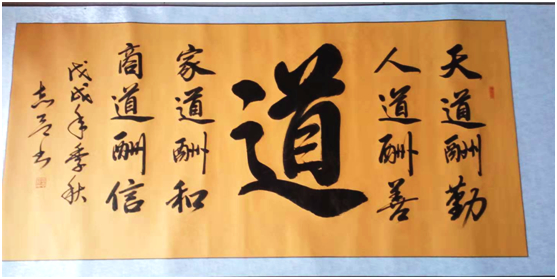 天道酬勤
人道酬善
道
家道酬和
商道酬信
戊戌年季秋